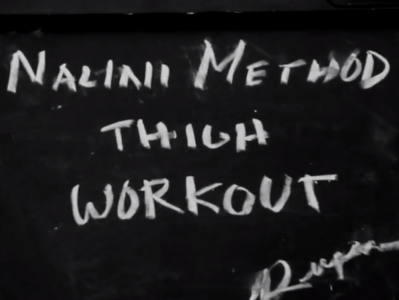 NALINI METHOD
THIGH
WORKOUT